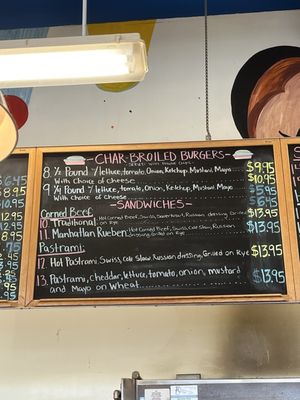 CHAR-BROILED BURGERS
8 ½ Pound w/ lettuce, tomato, Onion, Ketchup, Mustard, Mayo
With Choice of Cheese
$9.95
$10.95
9 ¼ Pound w/ lettuce, tomato, Onion, Ketchup, Mustard, Mayo
With choice of Cheese
$5.95
$6.45
SANDWICHES
Corned Beef
10. Traditional Hot Corned Beef, Swiss, Sauerkraut, Russian dressing, Grilled on Rye $13.95
11. Manhattan Rueben Hot Corned Beef, Swiss, Cole Slaw, Russian dressing, Grilled on Rye $13.95
Pastrami:
12. Hot Pastrami, Swiss, Cole Slaw, Russian dressing, Grilled on Rye $13.95
13. Pastrami, cheddar, lettuce, tomato, onion, mustard
and Mayo on Wheat $13.95